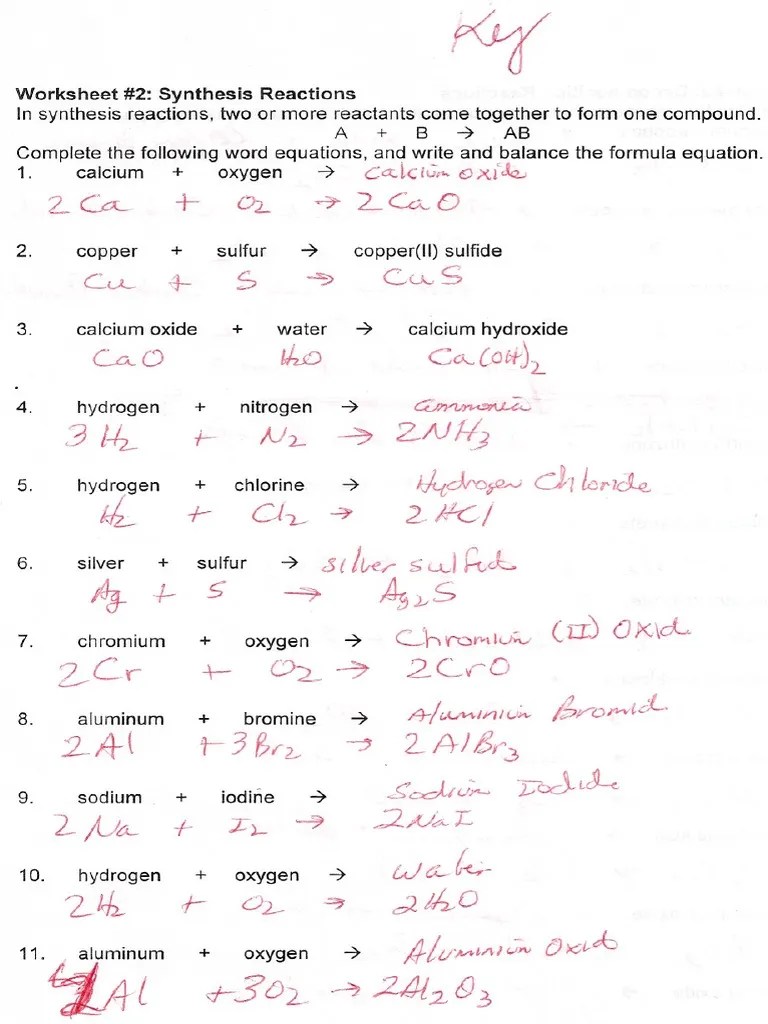 Key
Worksheet #2: Synthesis Reactions
In synthesis reactions, two or more reactants come together to form one compound.
A + B → AB
Complete the following word equations, and write and balance the formula equation.
1. calcium + oxygen → Calcium oxide
2 Ca + O2 → 2 CaO
2. copper + sulfur → copper(II) sulfide
Cu + S → CuS
3. calcium oxide + water → calcium hydroxide
CaO H2O Ca(OH)2
4. hydrogen + nitrogen → ammonia
3 H2 + N2 → 2NH3
5. hydrogen + chlorine → Hydrogen Chloride
H2 + Cl2 → 2 HCl
6. silver + sulfur → silver sulfid
Ag + S → Ag2S
7. chromium + oxygen → Chromium (II) Oxid
2 Cr + O2 → 2CrO
8. aluminum + bromine → Aluminium Bromid
2 Al + 3Br2 → 2 AlBr3
9. sodium + iodine → Sodium Iodide
2 Na + I2 → 2NaI
10. hydrogen + oxygen → water
2H2 + O2 → 2H2O
11. aluminum + oxygen → Aluminium Oxid
Al + 3O2 → 2Al2O3